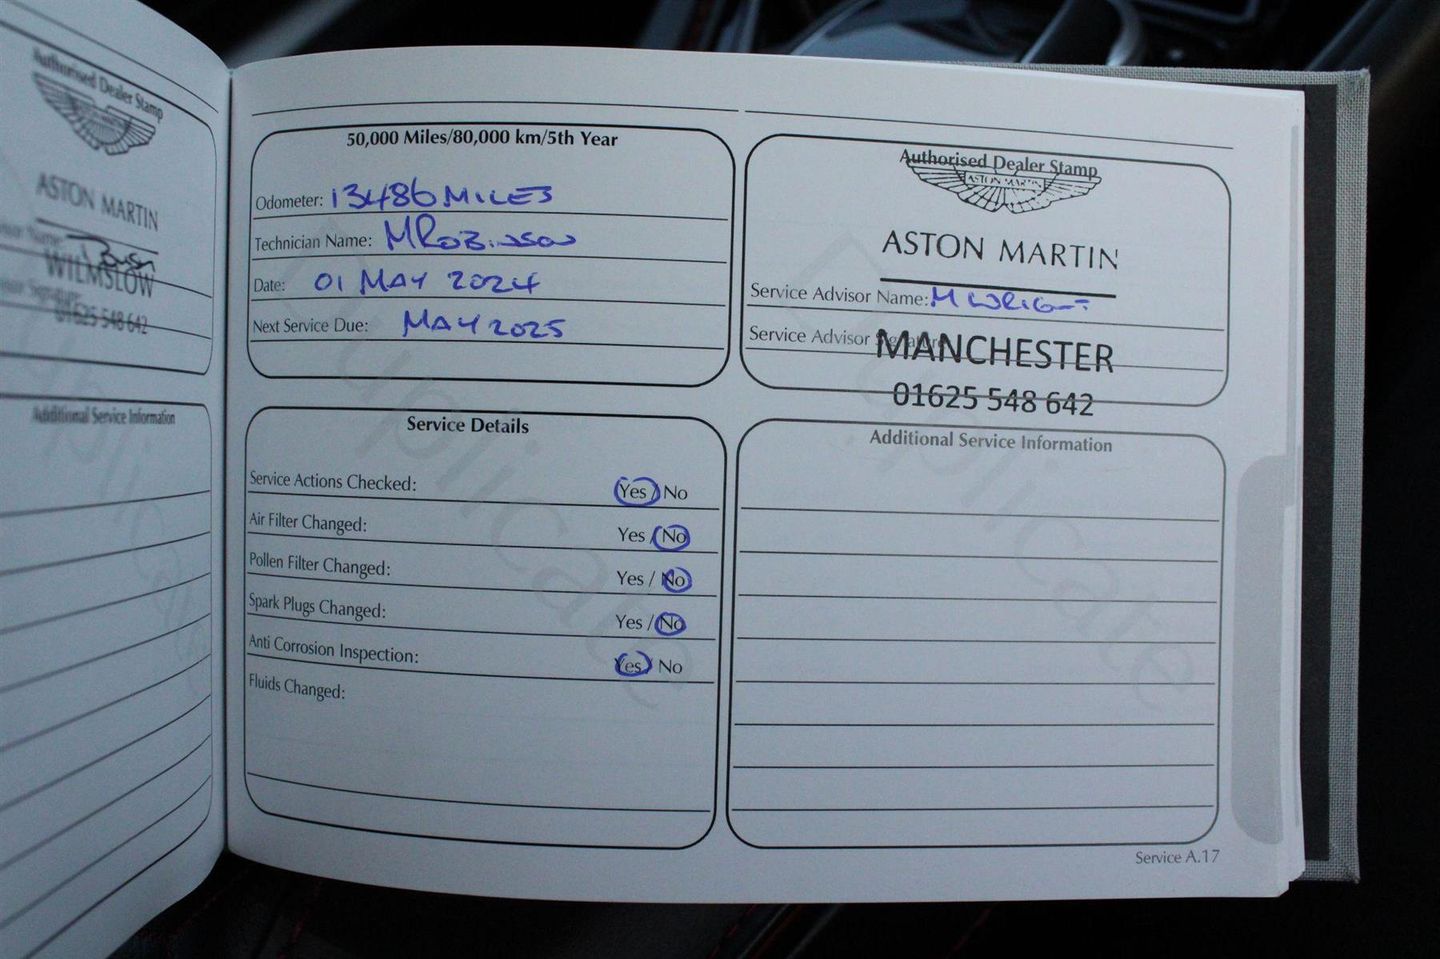 Authorised Dealer Stamp
ASTON MARTIN
WILMSLOW
01625 548 642
Additional Service Information
50,000 Miles/80,000 km/5th Year
Odometer: 13486 MILES
Technician Name: M ROBINSON
Date: 01 MAY 2024
Next Service Due: MAY 2025
Authorised Dealer Stamp
ASTON MARTIN
ASTON MARTIN
Service Advisor Name: M WRIGHT
Service Advisor Signature:
MANCHESTER
01625 548 642
Service Details
Service Actions Checked: Yes / No
Air Filter Changed: Yes / No
Pollen Filter Changed: Yes / No
Spark Plugs Changed: Yes / No
Anti Corrosion Inspection: Yes / No
Fluids Changed:
Additional Service Information
Duplicate
Duplicate
Service A.17